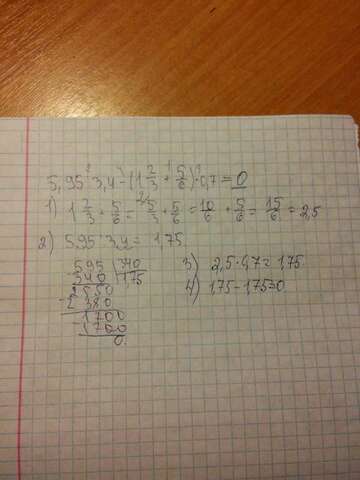 5,95 : 3,4 - (1 2/3 + 5/6) · 0,7 = 0
1) 1 2/3 + 5/6 = 5/3 + 5/6 = 10/6 + 5/6 = 15/6 = 2,5
2) 5,95 : 3,4 = 1,75
595 340
340 1,75
2550
2380
1700
1700
0
3) 2,5 · 0,7 = 1,75
4) 1,75 - 1,75 = 0